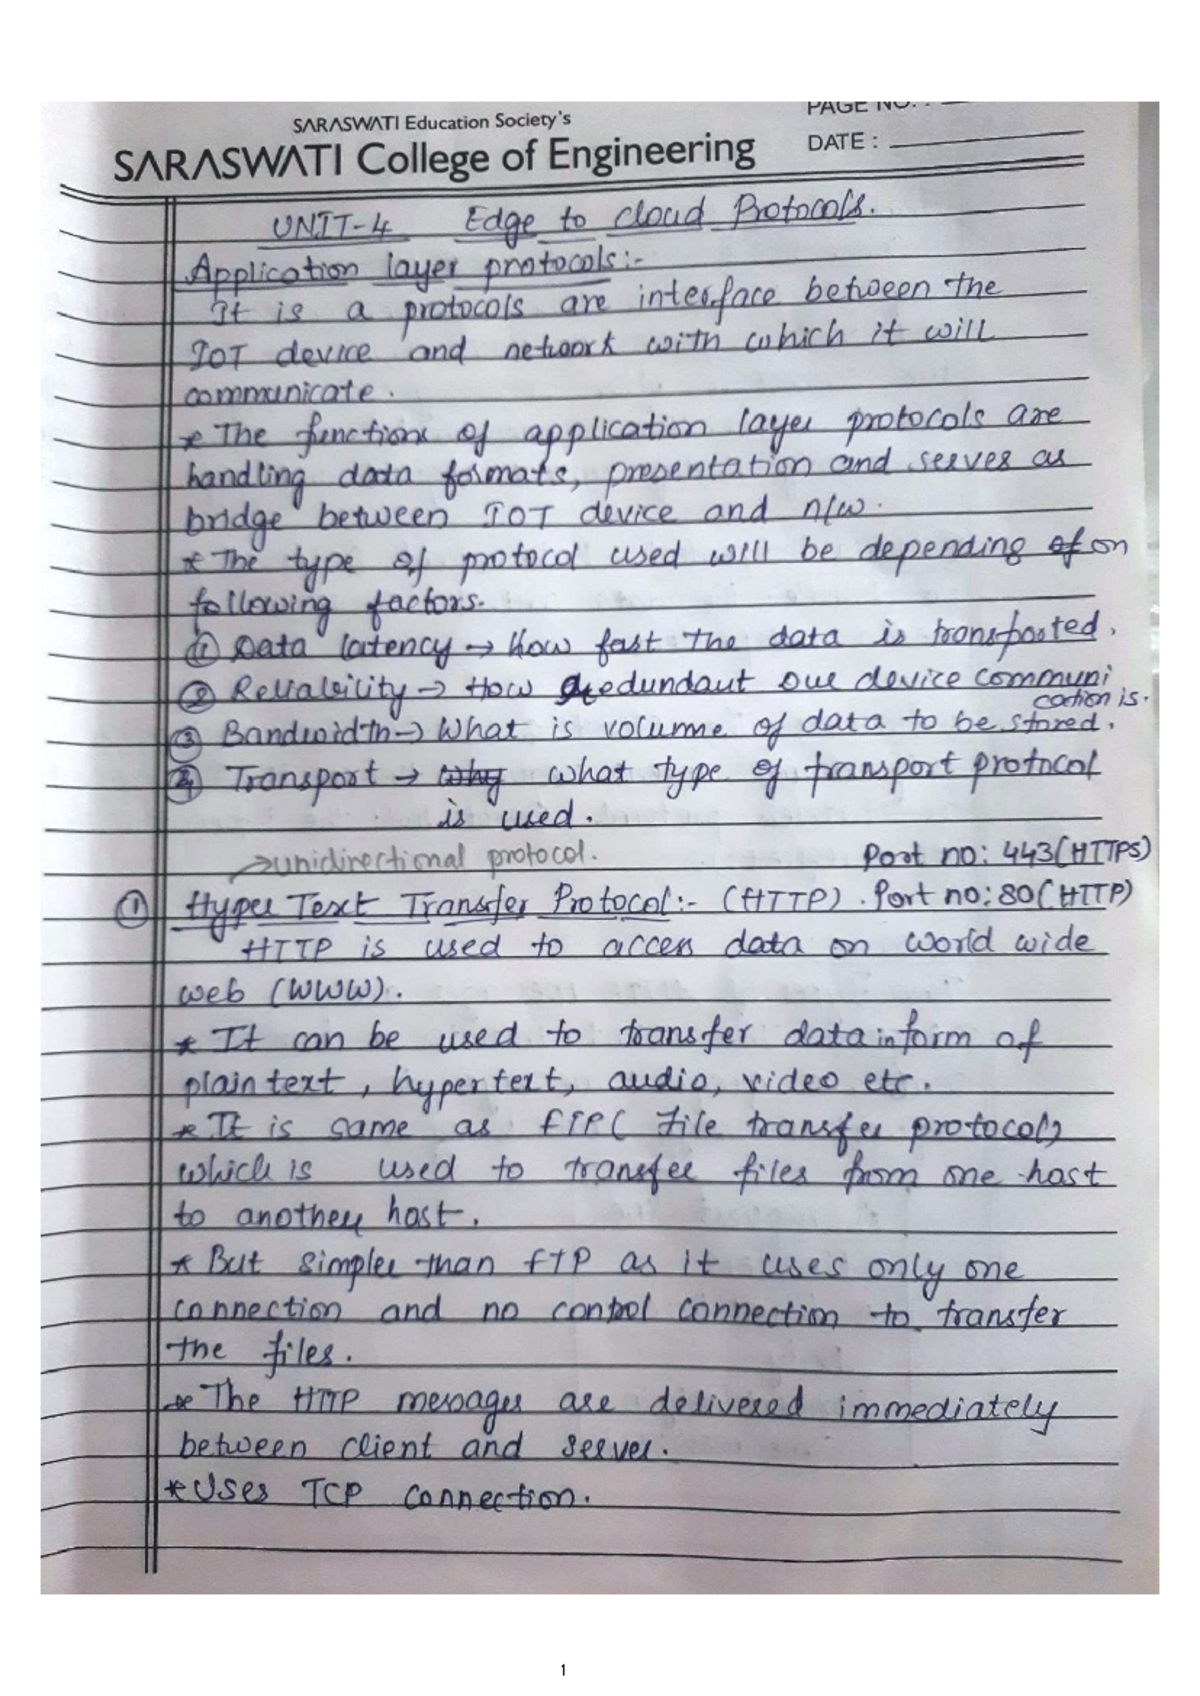 PAGE NO. :
SARASWATI Education Society's
DATE :
SARASWATI College of Engineering
UNIT-4 Edge to cloud Protocols.
Application layer protocols:-
It is a protocols are interface between the
IOT device and network with which it will
communicate.
* The functions of application layer protocols are
handling data formats, presentation and serves as
bridge between IOT device and n/w.
* The type of protocol used will be depending of on
following factors.
① Data latency → How fast the data is transported.
② Reliability → How redundant our device communi
cation is.
③ Bandwidth → What is volume of data to be stored.
④ Transport → why what type of transport protocol
is used.
→ unidirectional protocol. Port no: 443(HTTPS)
① Hyper Text Transfer Protocol:- (HTTP). Port no: 80(HTTP)
HTTP is used to access data on world wide
web (WWW).
* It can be used to transfer data in form of
plain text, hypertext, audio, video etc.
* It is same as FTP( File transfer protocol)
which is used to transfer files from one host
to another host.
* But simpler than FTP as it uses only one
connection and no control connection to transfer
the files.
* The HTTP messages are delivered immediately
between client and server.
* Uses TCP connection.
1